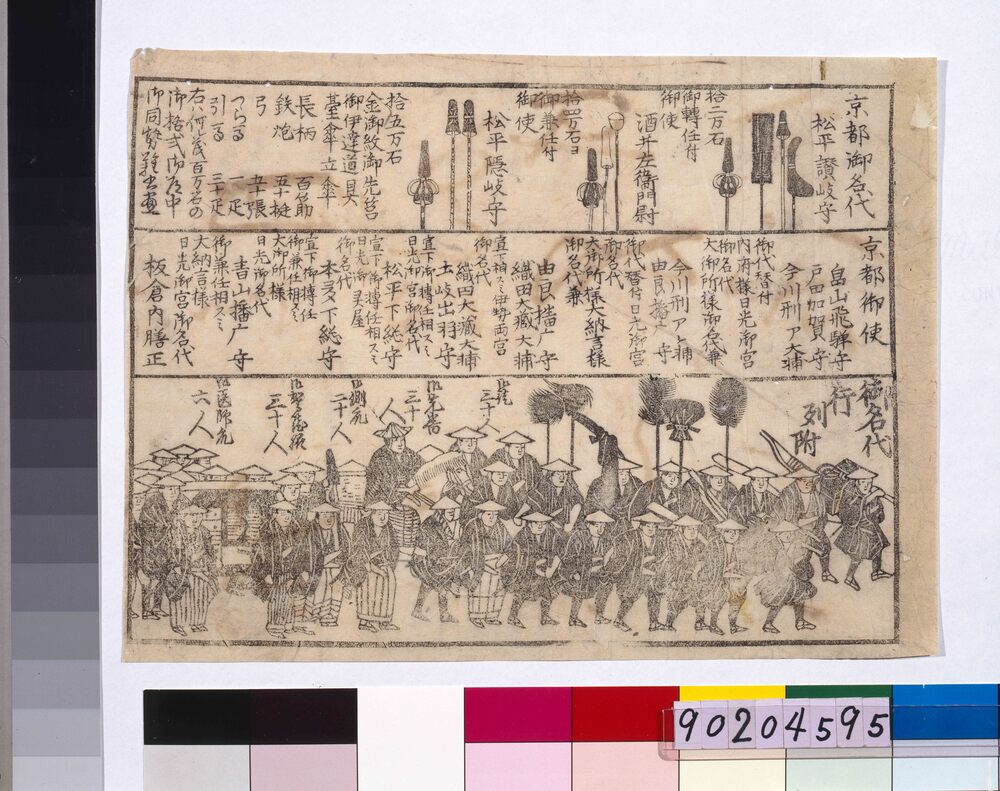 京都御名代
松平讃岐守
拾二万石
御轉任付
御使
酒井左衞門尉
拾四万石ヨ
御兼任付
御使
松平隠岐守
拾五万石
金御紋御先筥
御伊達道具
臺傘 立傘
長柄 百筋
鉄炮 五十挺
弓 五十張
一疋
引る 三十疋
右ハ何茂百万石の
御格式御道中
御同勢難尽画
京都御使
畠山飛騨守
戸田加賀守
今川刑ア大輔
御代替付
内府様日光御宮
御名代
大御所様御名代兼
今川刑ア大輔
由良播广守
御代替付日光御宮
御名代
大御所様大納言様
御名代兼
由良播广守
織田大蔵大輔
宣下相スミ伊勢両宮
御名代
織田大蔵大輔
土岐出羽守
宣下御轉任相スミ
日光御宮御名代
松平下総守
宣下御轉任相スミ
日光御灵屋
御名代
本多下総守
宣下御轉任
御兼任相スミ
大御所様
日光御名代
青山播广守
御兼任相スミ
大納言様
日光御宮御名代
板倉内膳正
御名代
行列附
三十人
御先番
三十人
御側衆
二十人
三十人
御医師衆
六人
90204595